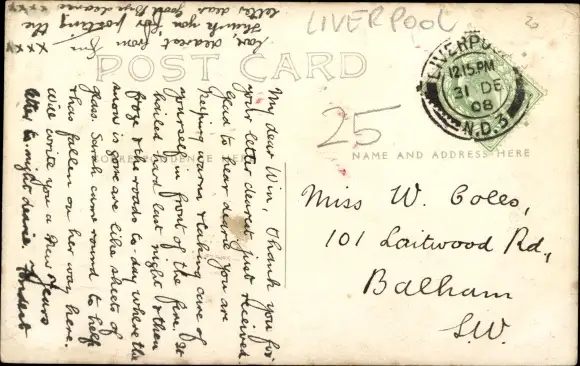 LIVERPOOL
20
POST CARD
LIVERPOOL
12.15 PM
31 DE
08
N.D.3
25
CORRESPONDENCE
NAME AND ADDRESS HERE
Miss W. Coles,
101 Laitwood Rd,
Balham
S.W.
My dear Win, Thank you for
your letter dearest just received.
Glad to hear dearie you are
keeping warm & taking care of
yourself in front of the fire. It
hailed hard last night & then
froze & the roads to-day where the
snow is gone are like sheets of
glass. Sarah came round to help
& has fallen on her way here.
Will write you a New Years
letter to-night dearie. Fondest
love, dearest from
Thank you for posting the
letter dear. Good bye dearie
xxxx
xxxx